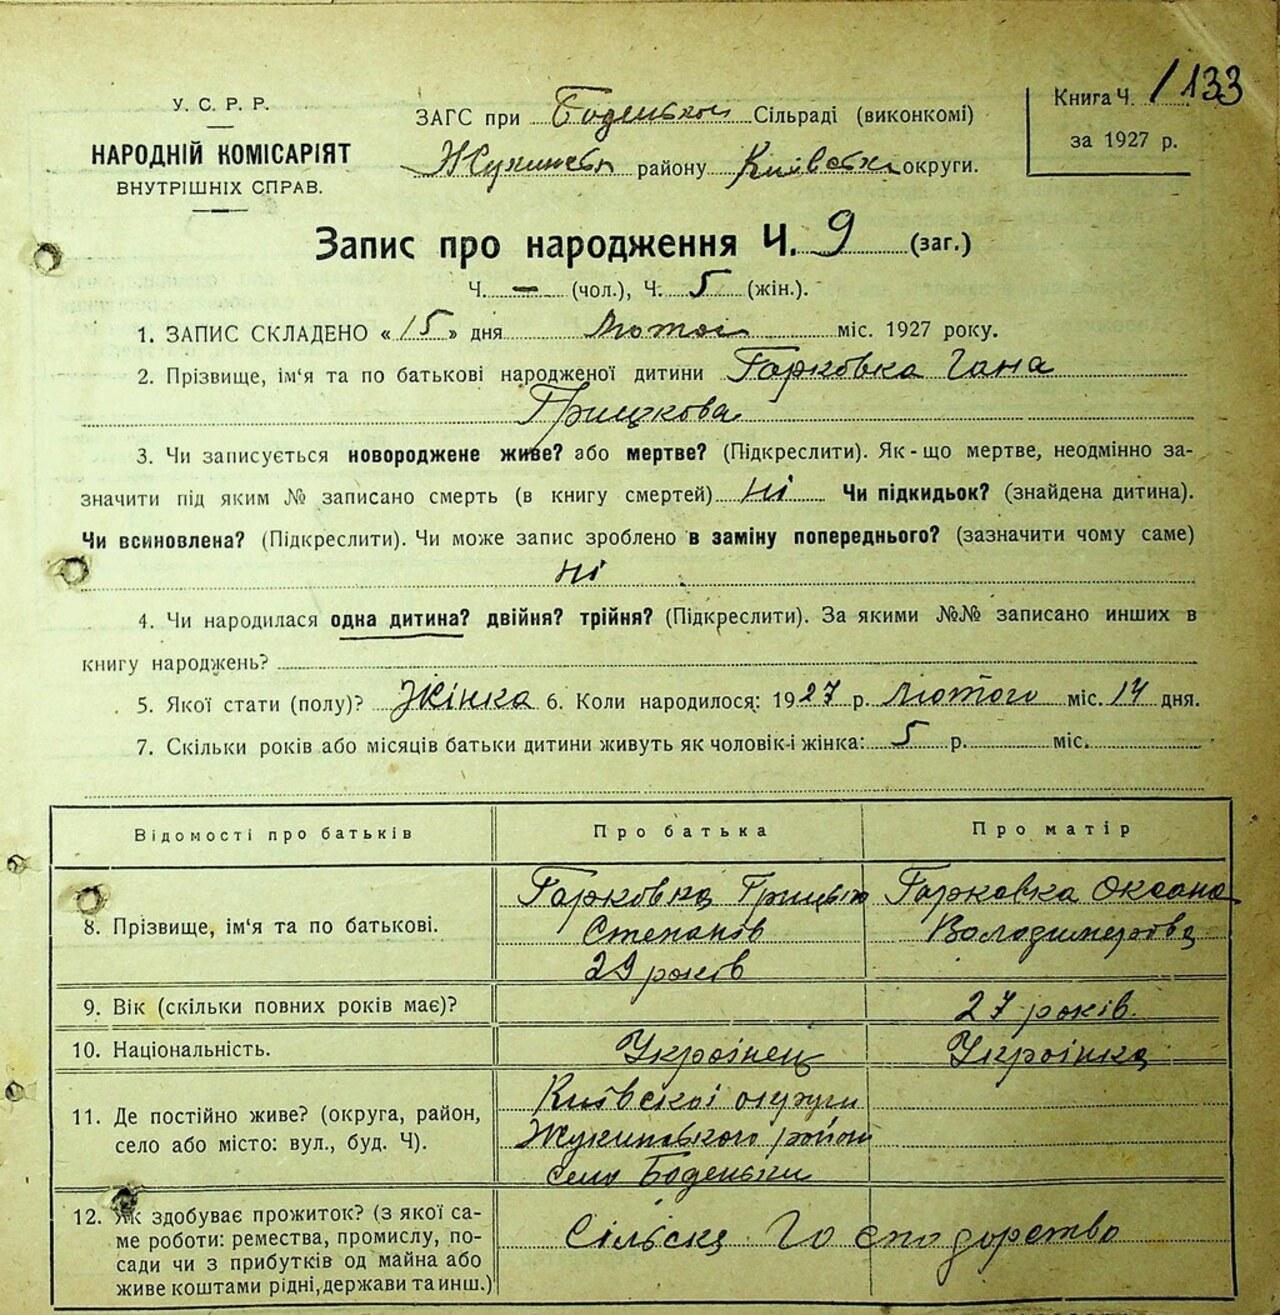 У. С. Р. Р.
НАРОДНІЙ КОМІСАРІЯТ
ВНУТРІШНІХ СПРАВ.
ЗАГС при Боденькой Сільраді (виконкомі)
Жукинськ району Київськ округи.
Книга Ч. / 133
за 1927 р.
Запис про народження Ч. 9 (заг.)
Ч. — (чол.), Ч. 5 (жін.).
1. ЗАПИС СКЛАДЕНО « 15 » дня лютого міс. 1927 року.
2. Прізвище, ім'я та по батькові народженої дитини Горковка Гана
Грицкова
3. Чи записується новороджене живе? або мертве? (Підкреслити). Як-що мертве, неодмінно за-
значити під яким № записано смерть (в книгу смертей) Ні Чи підкидьок? (знайдена дитина).
Чи всиновлена? (Підкреслити). Чи може запис зроблено в заміну попереднього? (зазначити чому саме)
Ні
4. Чи народилася одна дитина? двійня? трійня? (Підкреслити). За якими №№ записано инших в
книгу народжень?
5. Якої стати (полу)? Жінка 6. Коли народилося: 1927 р. Лютого міс. 14 дня.
7. Скільки років або місяців батьки дитини живуть як чоловік-і жінка: 5 р. міс.
Відомості про батьків Про батька Про матір
8. Прізвище, ім'я та по батькові.
Горковка Грицько
Степанів
29 років
Горковка Оксана
Володимирова
9. Вік (скільки повних років має)? 27 років.
10. Національність. Украінец Украінка
11. Де постійно живе? (округа, район,
село або місто: вул., буд. Ч).
Київскоі округи
Жукиновского район
село Боденьки
12. Як здобуває прожиток? (з якої са-
ме роботи: ремества, промислу, по-
сади чи з прибутків од майна або
живе коштами рідні, держави та инш.)
Сільске Господорство